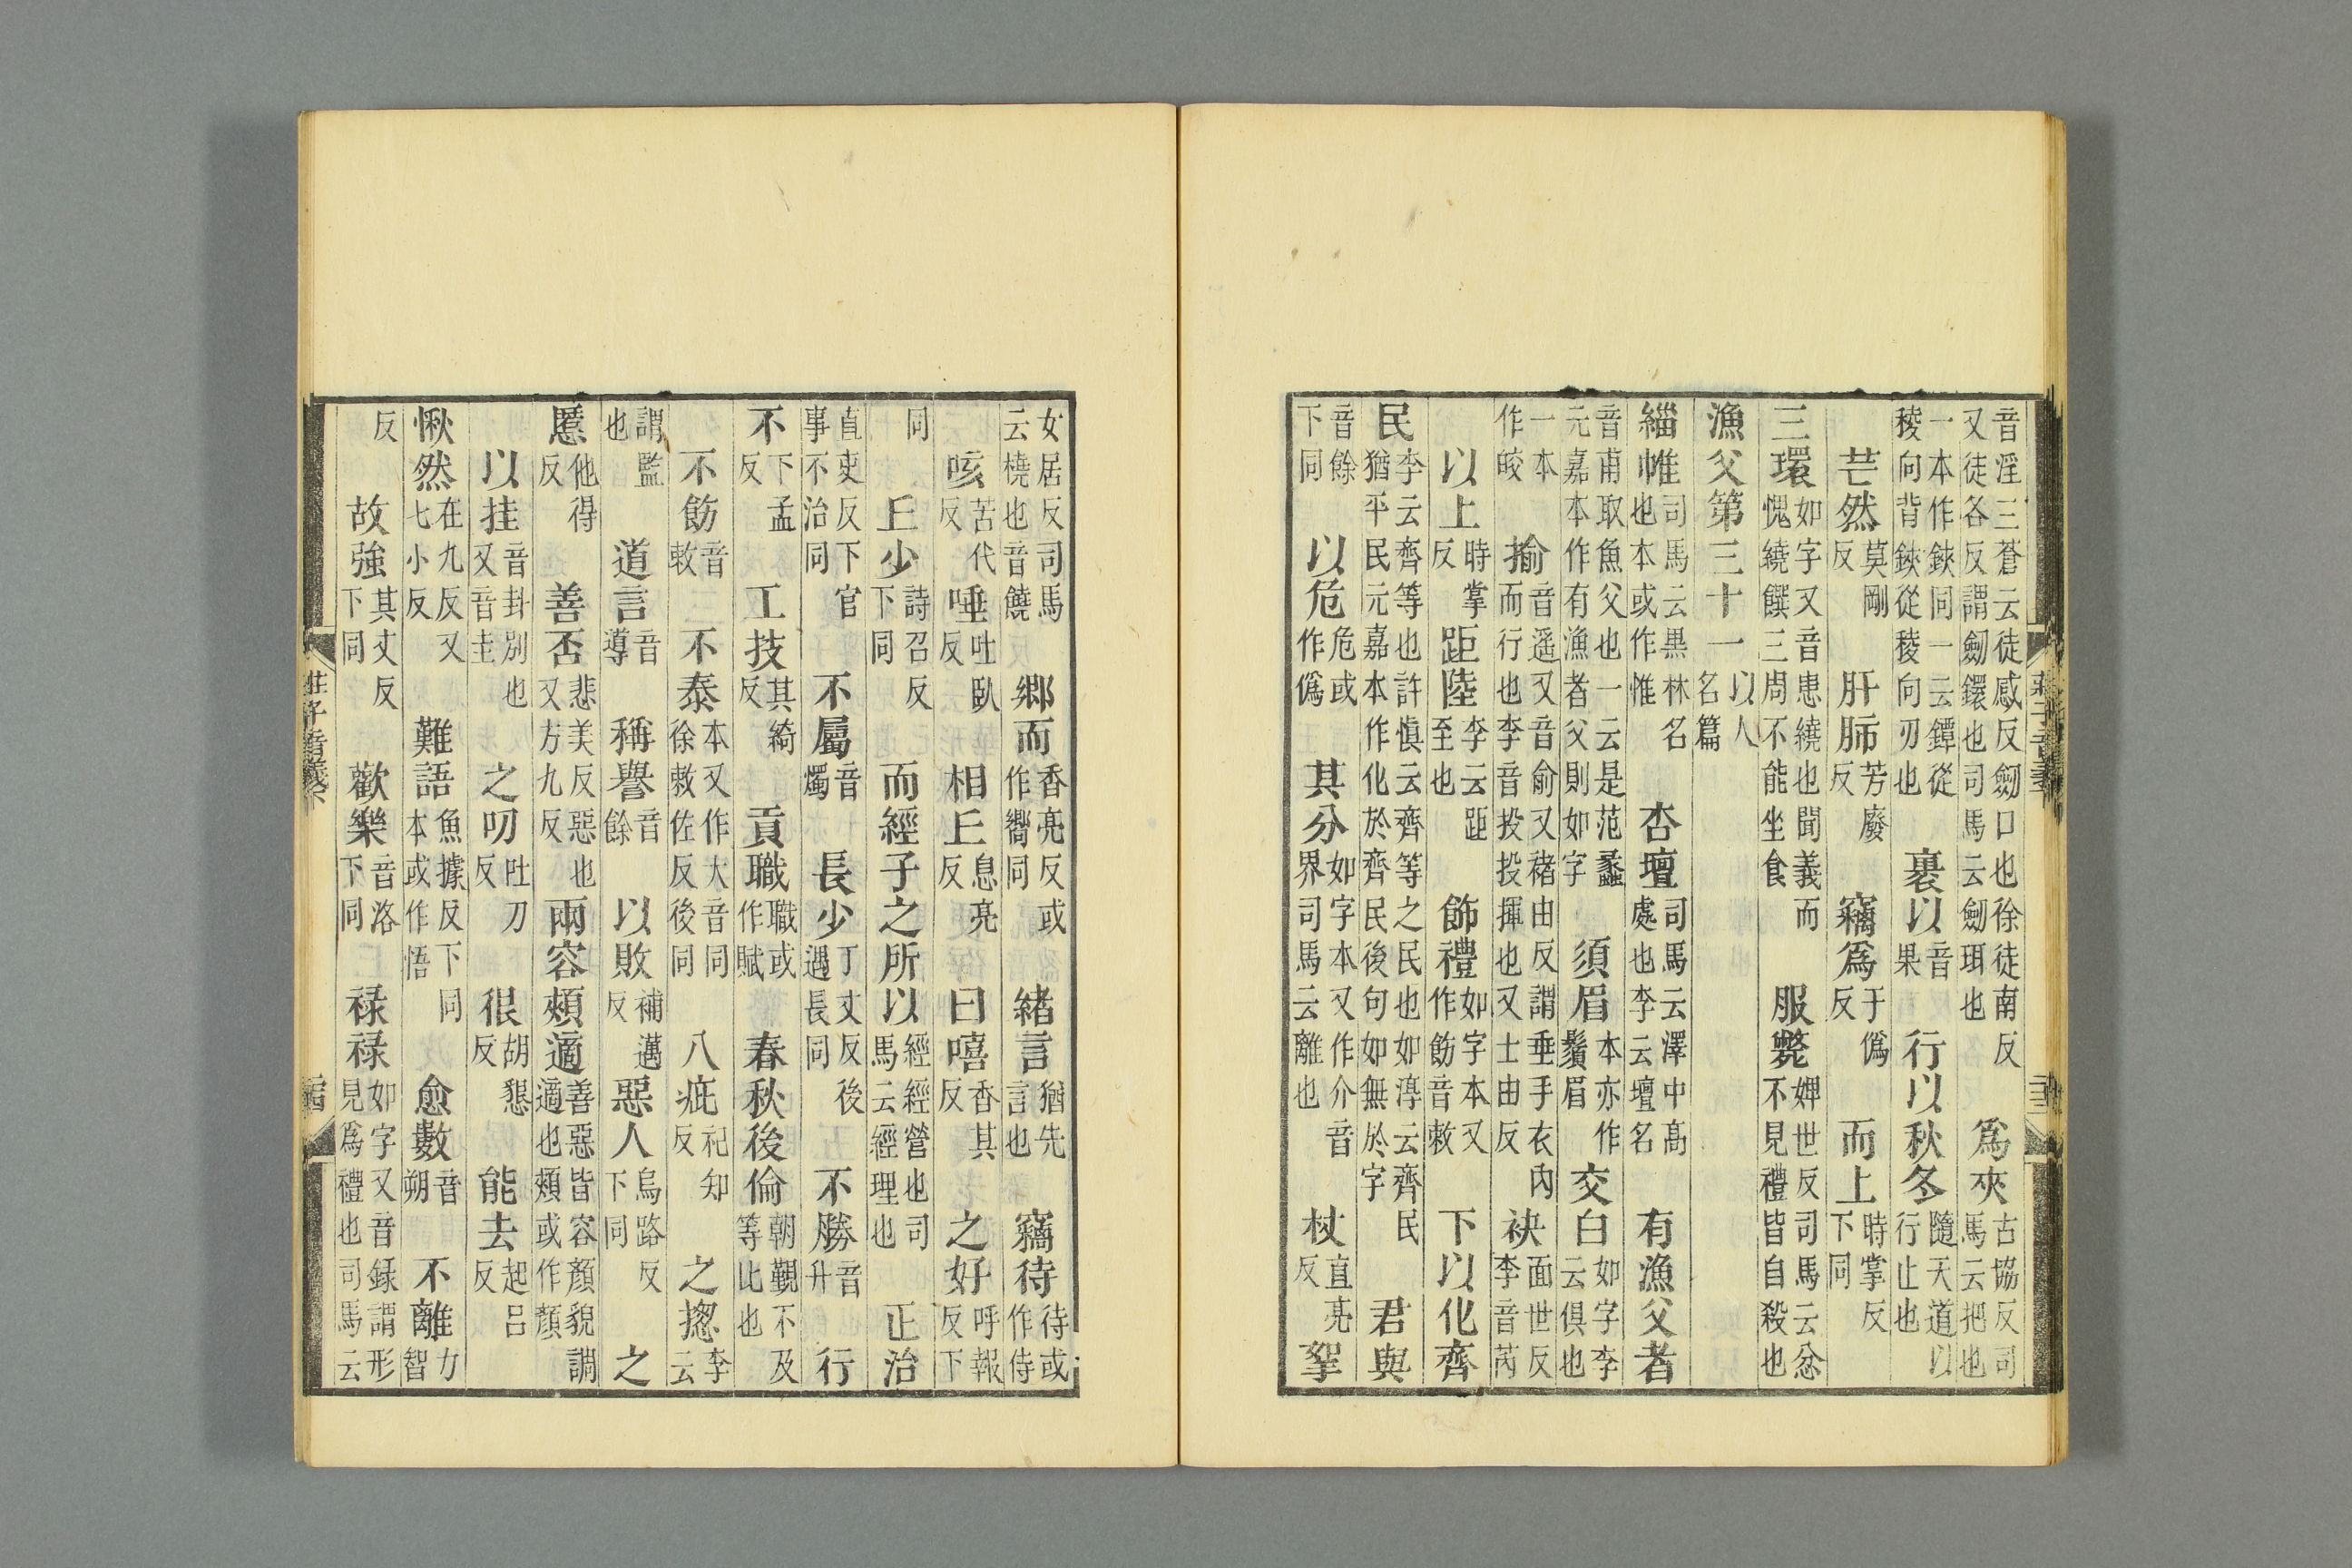 音淫三蒼云徒感反劒口也徐徒南反
又徒各反謂劒鐶也司馬云劒珥也 爲夾古協反司馬云把也
一本作鋏同一云鐔從稜向背鋏從稜向刃也 裹以音果 行以秋冬隨天道以行止也
芒然莫剛反 肝肺芳廢反 竊爲于僞反 而上時掌反下同
三環如字又音患繞也聞義而愧繞饌三周不能坐食 服斃婢世反司馬云忿不見禮皆自殺也
漁父第三十一以人名篇
緇帷司馬云黒林名也本或作惟 杏壇司馬云澤中髙處也李云壇名 有漁父者
音甫取魚父也一云是范蠡元嘉本作有漁者父則如字 須眉本亦作鬚眉 交白如字李云俱也
一本作皎 揄音遥又音俞又褚由反謂垂手衣內而行也李音投投揮也又士由反 袂面世反李音芮
以上時掌反 距陸李云距至也 飾禮如字本又作飭音敕 下以化齊
民李云齊等也許慎云齊等之民也如淳云齊民猶平民元嘉本作化於齊民後句如無於字 君與
音餘下同 以危危或作僞 其分如字本又作介音界司馬云離也 杖直亮反 挐
女居反司馬云橈也音饒 郷而香亮反或作嚮同 緒言猶先言也 竊待待或作侍
咳苦代反 唾吐臥反 相丘息亮反 曰嘻香其反 之好呼報反下
同 丘少詩召反下同 而經子之所以經經營也司馬云經理也 正治
直吏反下官事不治同 不屬音燭 長少丁丈反後遇長同 不勝音升 行
不下孟反 工技其綺反 貢職職或作賦 春秋後倫朝覲不及等比也
不飭音敕 不泰本又作大音同徐敕佐反後同 八疵祀知反 之揔李云
謂監也 道言音導 稱譽音餘 以敗補邁反 惡人烏路反下同 之
慝他得反 善否悲美反惡也又方九反 兩容頰適善惡皆容顏貌調適也頰或作顏
以挂音卦別也又音圭 之叨吐刀反 很胡懇反 能去起吕反
愀然在九反又七小反 難語魚據反下同本或作悟 愈數音朔 不離力智
反 故強其丈反下同 歡樂音洛下同 祿祿如字又音錄謂形見爲禮也司馬云